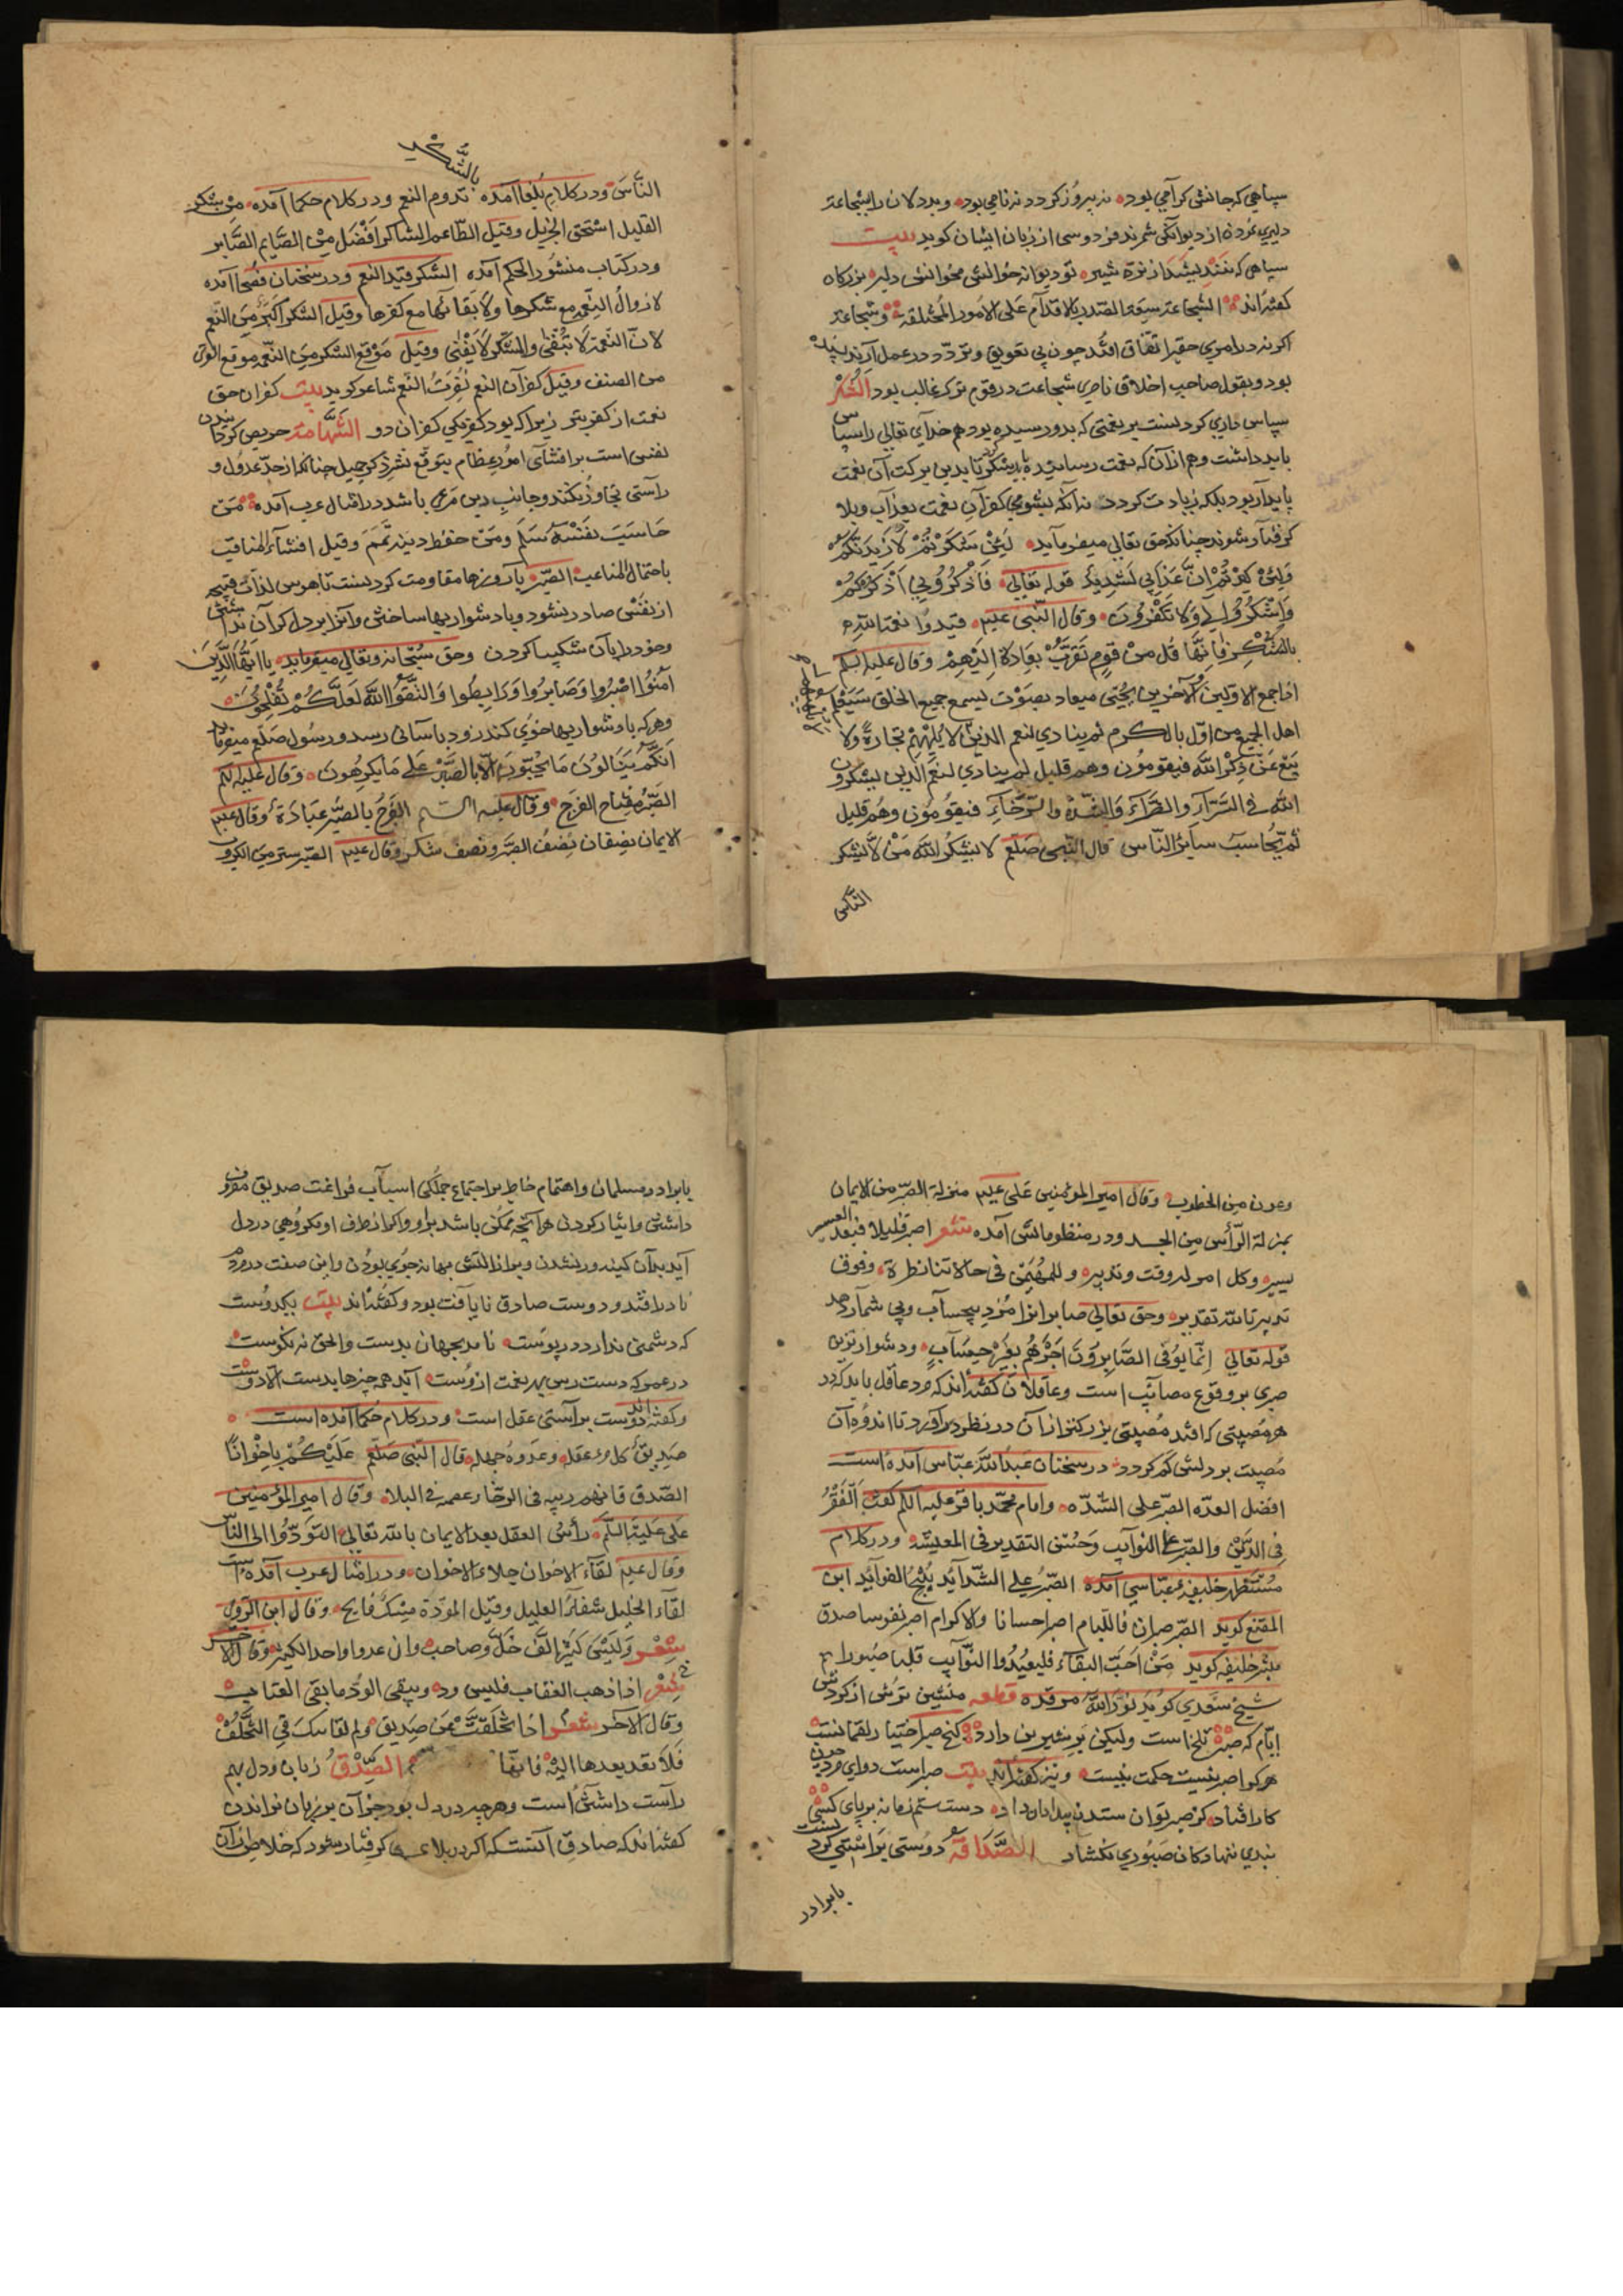 سپاهی که جانش کرامی بود نه پیروز کردد نه نامی بود و بددلان را بشجاعة
دلیری نمودن از دیوانکی شمرند فردوسی از زبان ایشان کوید بیت
سپاهی که نندیشد از نره شیر تو دیوانه خوانش مخوانش دلیر بزرکان
کفته‌اند الشجاعة سعة الصدر بالاقدام علی الامور المختلفة و شجاعة
اکرنه در امری حقیر اتفاق افتد چون بی تعویق و تردد در عمل آرند پسندیده
بود و بقول صاحب اخلاق ناصری شجاعت در قوم ترک غالب بود الشکر
سپاس داری کردنست بر نعمتی که بدو رسیده بود هم خدای تعالی را سپاس
باید داشت و هم از آن که نعمت رسانیده باید شکر کرد تا بدین برکت آن نعمت
پایدار بود بلکه زیادت کردد نه آنکه بشومی کفران نعمت بعذاب و بلا
کرفتار شوند چنانکه حق تعالی میفرماید لَئِنْ شَكَرْتُمْ لَأَزِيدَنَّكُمْ
وَلَئِنْ كَفَرْتُمْ إِنَّ عَذَابِي لَشَدِيدٌ قوله تعالی فَاذْكُرُونِي أَذْكُرْكُمْ
وَاشْكُرُوا لِي وَلَا تَكْفُرُونِ وقال النبی علیم قیدوا نعم الله
بالشکر فانها قل من قوم وقال علیه السلم
اذا جمع الاولین والآخرین یجئ مناد بصوت لیسمع جمیع الخلق سیعلم
اهل الجمع من اولی بالکرم ثم ینادی لیقم الذین لا تلهیهم تجارة ولا
بیع عن ذکر الله فیقومون وهم قلیل ثم ینادی لیقم الذین یشکرون
الله فی السراء والضراء والشدة والرخاء فیقومون وهم قلیل
ثم یحاسب سایر الناس قال النبی صلعم لا یشکر الله من لا یشکر
الناس
بالشکر
الناس ودر کلام بلغا آمده تدوم النعم ودر کلام حکما آمده من یشکر
القلیل استحق الجزیل وقیل الطاعم الشاکر افضل من الصایم الصابر
ودر کتاب منثور الحکم آمده الشکر قید النعم ودر سخنان فصحا آمده
لا زوال النعم مع شکرها ولا بقا لها مع کفرها وقیل الشکر اکبر من النعم
لان النعمة لا تبقی والشکر لا یفنی وقیل موقع الشکر من النعمة موقع القری
من الضیف وقیل کفران النعم نفرت النعم شاعر کوید بیت کفران حق
نعمت از کفر بتر زیرا که بود کفر یکی کفران دو الشهامة حریص کردانیدن
نفس است بر افشای امور عظام بتوقع نشر ذکر جمیل چنانکه از حد عدول و
راستی تجاوز نکند و جانب دین مرعی باشد در امثال عرب آمده من
حاسب نفسه سلم ومن حفظ دینه تمم وقیل افشاء المناقب
باحتمال المتاعب الصبر با آرزوها مقاومت کردنست تا هوس لذات قبیحه
از نفس صادر نشود و با دشواریها ساختن و آنرا بر دل کران نداشتن
و خود را بآن شکیبا کردن و حق سبحانه و تعالی میفرماید یَا أَیُّهَا الَّذِینَ
آمَنُوا اصْبِرُوا وَصَابِرُوا وَرَابِطُوا وَاتَّقُوا اللَّهَ لَعَلَّكُمْ تُفْلِحُونَ
و هر که با دشواریها خوی کند زود بآسانی رسد و رسول صلعم میفرماید
انکم لن تنالون ما تحبون الا بالصبر علی ما یکرهون وقال علیه السلم
الصبر مفتاح الفرج وقال علیه السلم الفرج بالصبر عبادة وقال علیم
الایمان نصفان نصف الصبر ونصف شکر وقال علیم الصبر ستر من الکروب
وعون من الخطوب وقال امیر المؤمنین علی علیم منزلة الصبر من الایمان
بمنزلة الرأس من الجسد ودر منظوماتش آمده شعر اصبر قلیلا فبعد العسر
یسیر وکل امر له وقت وتدبیر وللمهیمن فی حالاتنا نظرة وفوق
تدبیرنا لله تقدیر و حق تعالی صابرانرا مزد بیحساب و بی شمار دهد
قوله تعالی إِنَّمَا يُوَفَّى الصَّابِرُونَ أَجْرَهُمْ بِغَيْرِ حِسَابٍ و دشوارترین
صبری بر وقوع مصایب است و عاقلان کفته‌اند که مرد عاقل باید که در
هر مصیبتی که افتد مصیبتی بزرکتر از آن در نظر خود آورد تا اندوه آن
مصیبت بر دلش کم کردد در سخنان عبد الله عباس آمده است
افضل العدة الصبر علی الشدة و امام محمد باقر علیه السلم الفقر
فی الدین والصبر علی النوایب وحسن التقدیر فی المعیشة ودر کلام
مستظهر خلیفه عباسی آمده الصبر علی الشداید ینتج الفواید ابن
المقنع کوید الصبر صبران فاللیام اصبر اجسانا والاکرام اصبر نفوسا صدق
خلیفه کوید من احب البقاء فلیعد للنوایب قلبا صبورا
شیخ سعدی کوید نور الله مرقده قطعه منشین ترش از کردش
ایام که صبر تلخ است ولیکن بر شیرین دارد کنج صبر اختیار لقمانست
هر کرا صبر نیست حکمت نیست و نیز کفته‌اند بیت صبرست دوای مرد چون
کار افتاد کز صبر توان ستدن داد دست ستم زمانه بر پای کسی
بندی ننهاد کان صبوری نکشاد الصداقة دوستی براستی کردنست
با برادر
با برادر مسلمان و اهتمام خاطر بر اجتماع جملکی اسباب فراغت صدیق مقرون
داشتن و ایثار کردن هر آنچه ممکن باشد برو و اکر از طرف او مکروهی در دل
آید بدآن کینه ور نشدن و بهانه جوی نبودن و این صفت در مردم
نادر افتد و دوست صادق نایافت بود و کفته‌اند بیت یکدوست
که دشمنی ندارد در پوست نامد بجهان بدست والحق نه نکوست
در عمر که دست رس بهر نعمت ازوست آید همه چیزها بدست الا دوست
و کفته‌اند دوست براستی عقل است ودر کلام حکما آمده است
صدیق کل امرء عقله وعدوه جهله قال النبی صلعم علیکم باخوان
الصدق فانهم زینة فی الرخا وعصمة فی البلاء وقال امیر المؤمنین
علی علیه السلم رأس العقل بعد الایمان بالله تعالی التودد الی الناس
وقال علیم لقاء الاخوان جلاء الاحزان ودر امثال عرب آمده است
لقاء الخلیل شفاء العلیل وقیل المودة مسک فایح وقال ابن الرومی
شعر ولیس کثیر الف خل وصاحب وان عدوا واحدا لکثیر وقال الآخر
شعر اذا ذهب العتاب فلیس ود ویبقی الود ما بقی العتاب
وقال الآخر شعر اذا تخلفت عن صدیق ولم یعاتبک فی التخلف
فلا تعد بعدها الیه فانها الصدق زبان و دل بهم
راست داشتن است و هر چه در دل بود جز آن بر زبان نراندن
کفته‌اند که صادق آنست که اکر در بلای کرفتار شود که خلاص از آن